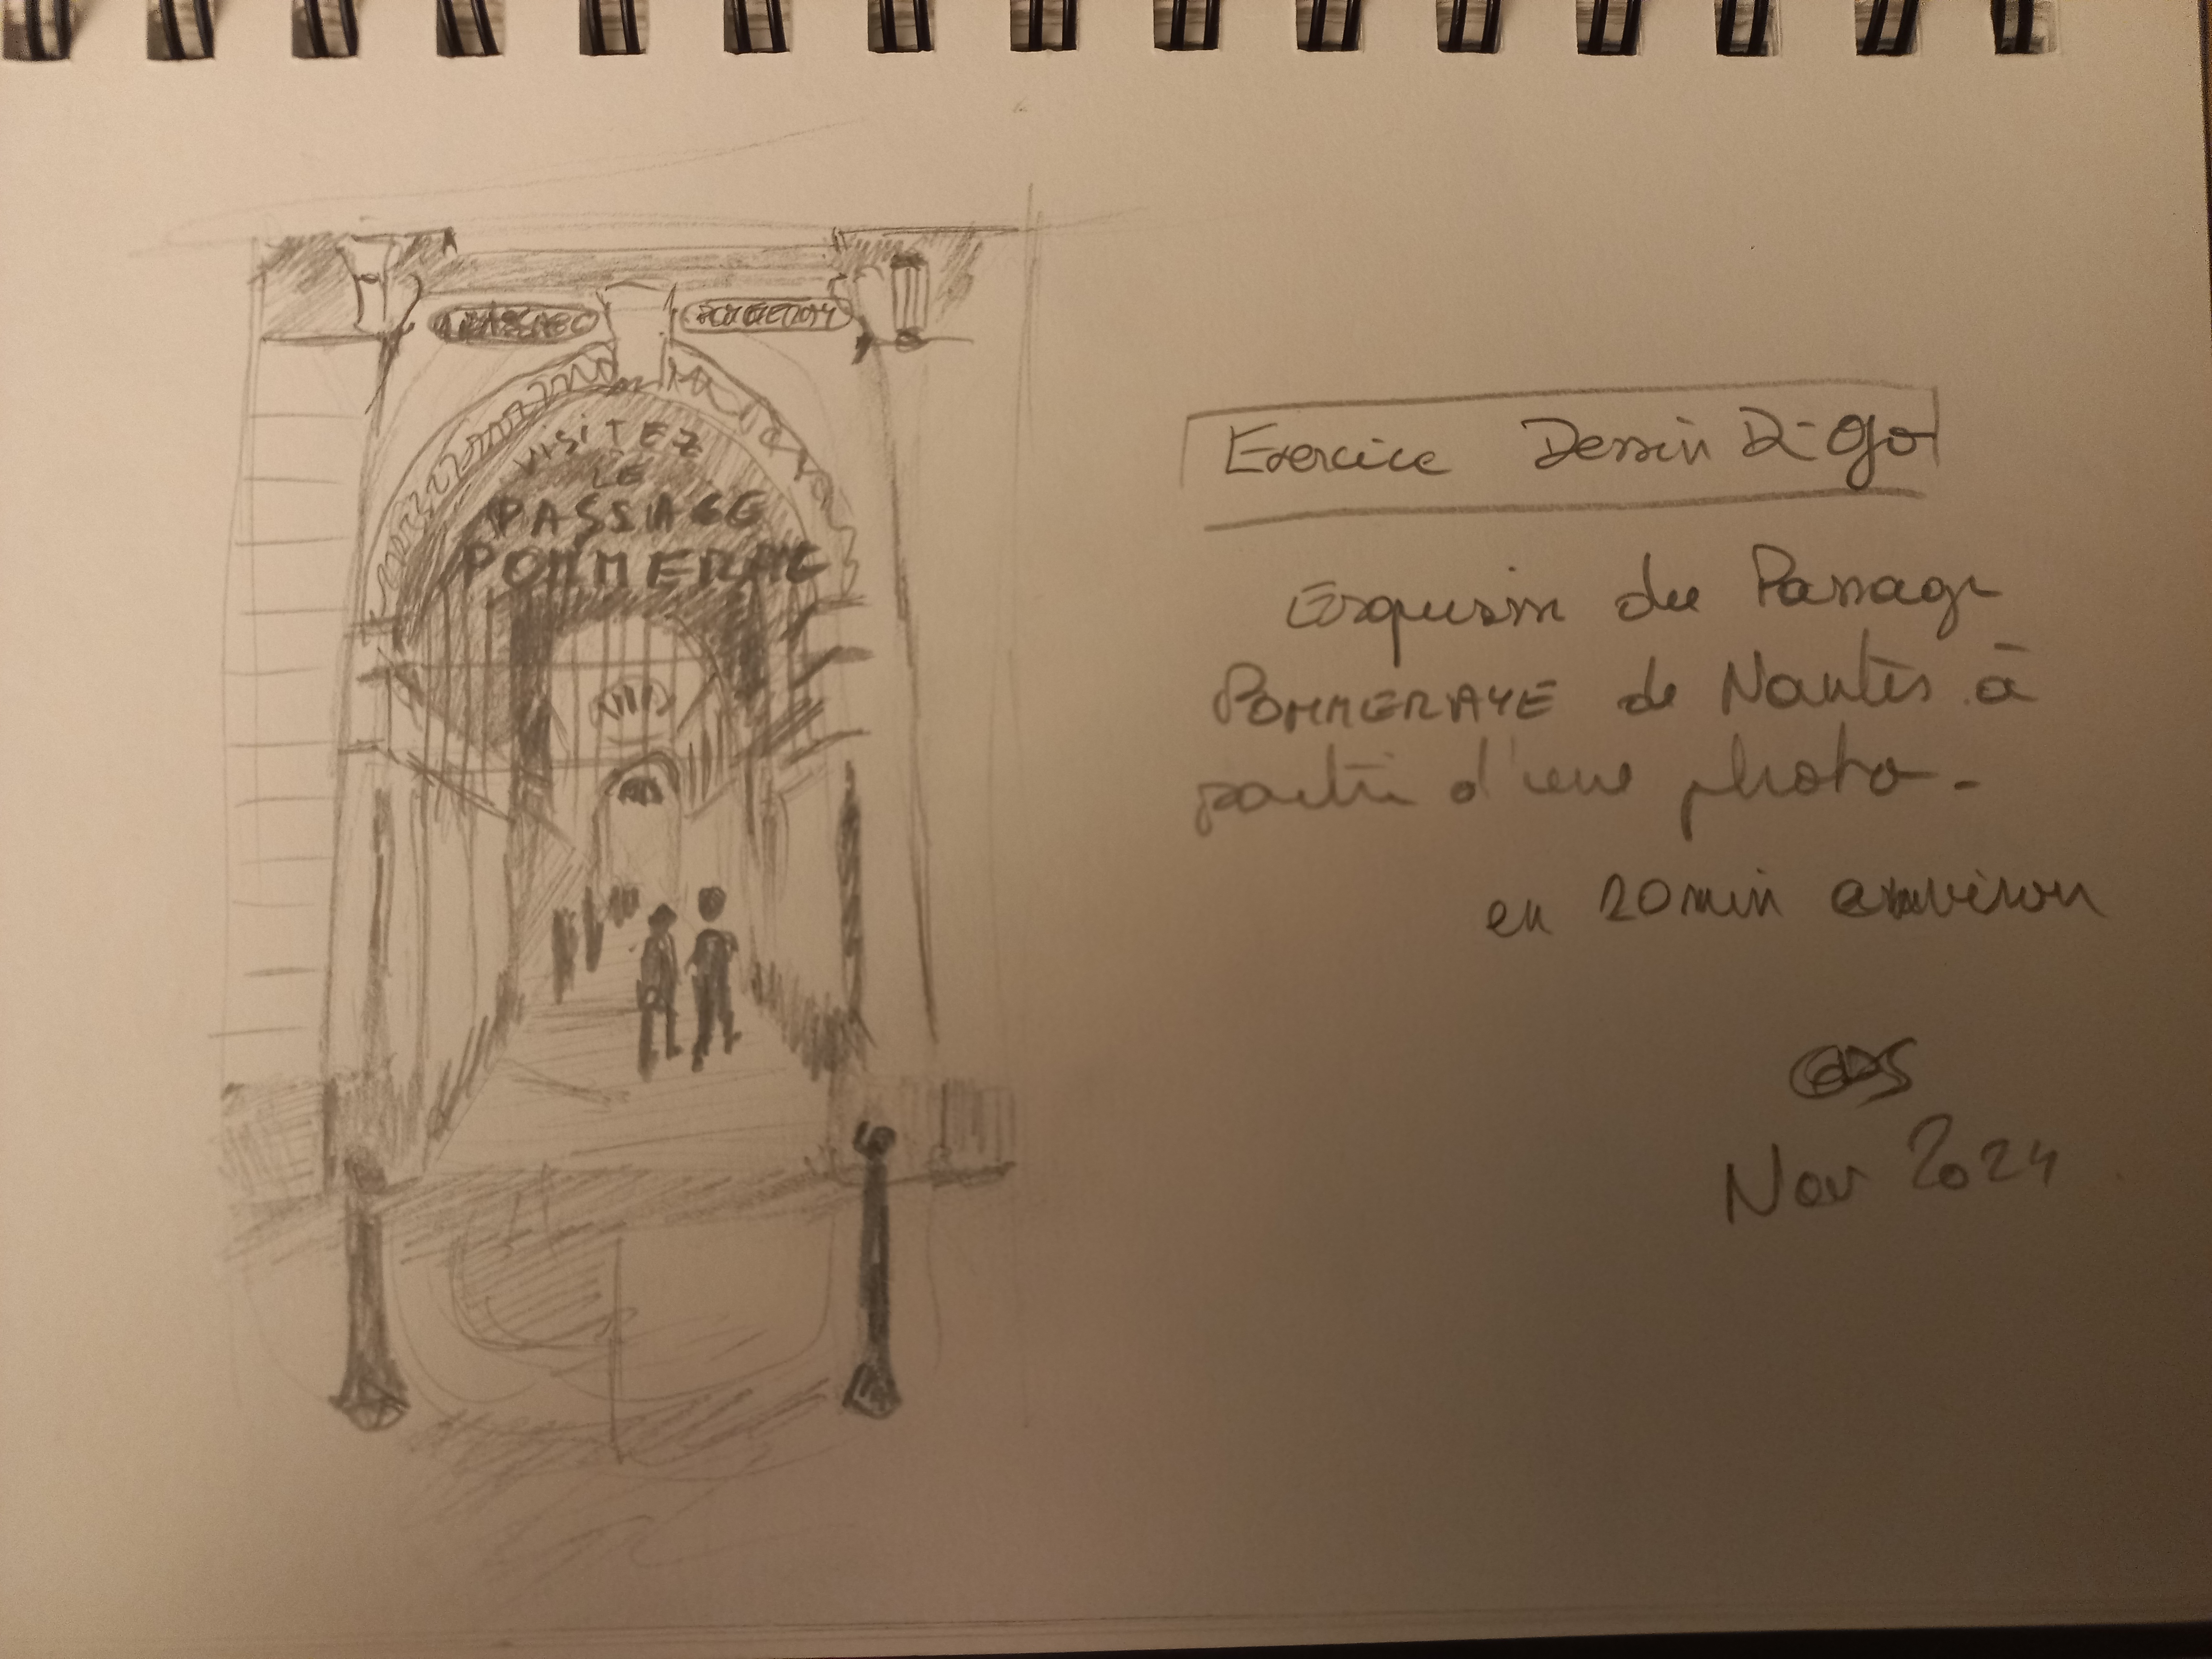 VISITEZ
LE
PASSAGE
POMMERAYE
Exercice Dessin
Esquisse du Passage
POMMERAYE de Nantes à
partir d'une photo -
en 20 min environ
Nov 2024